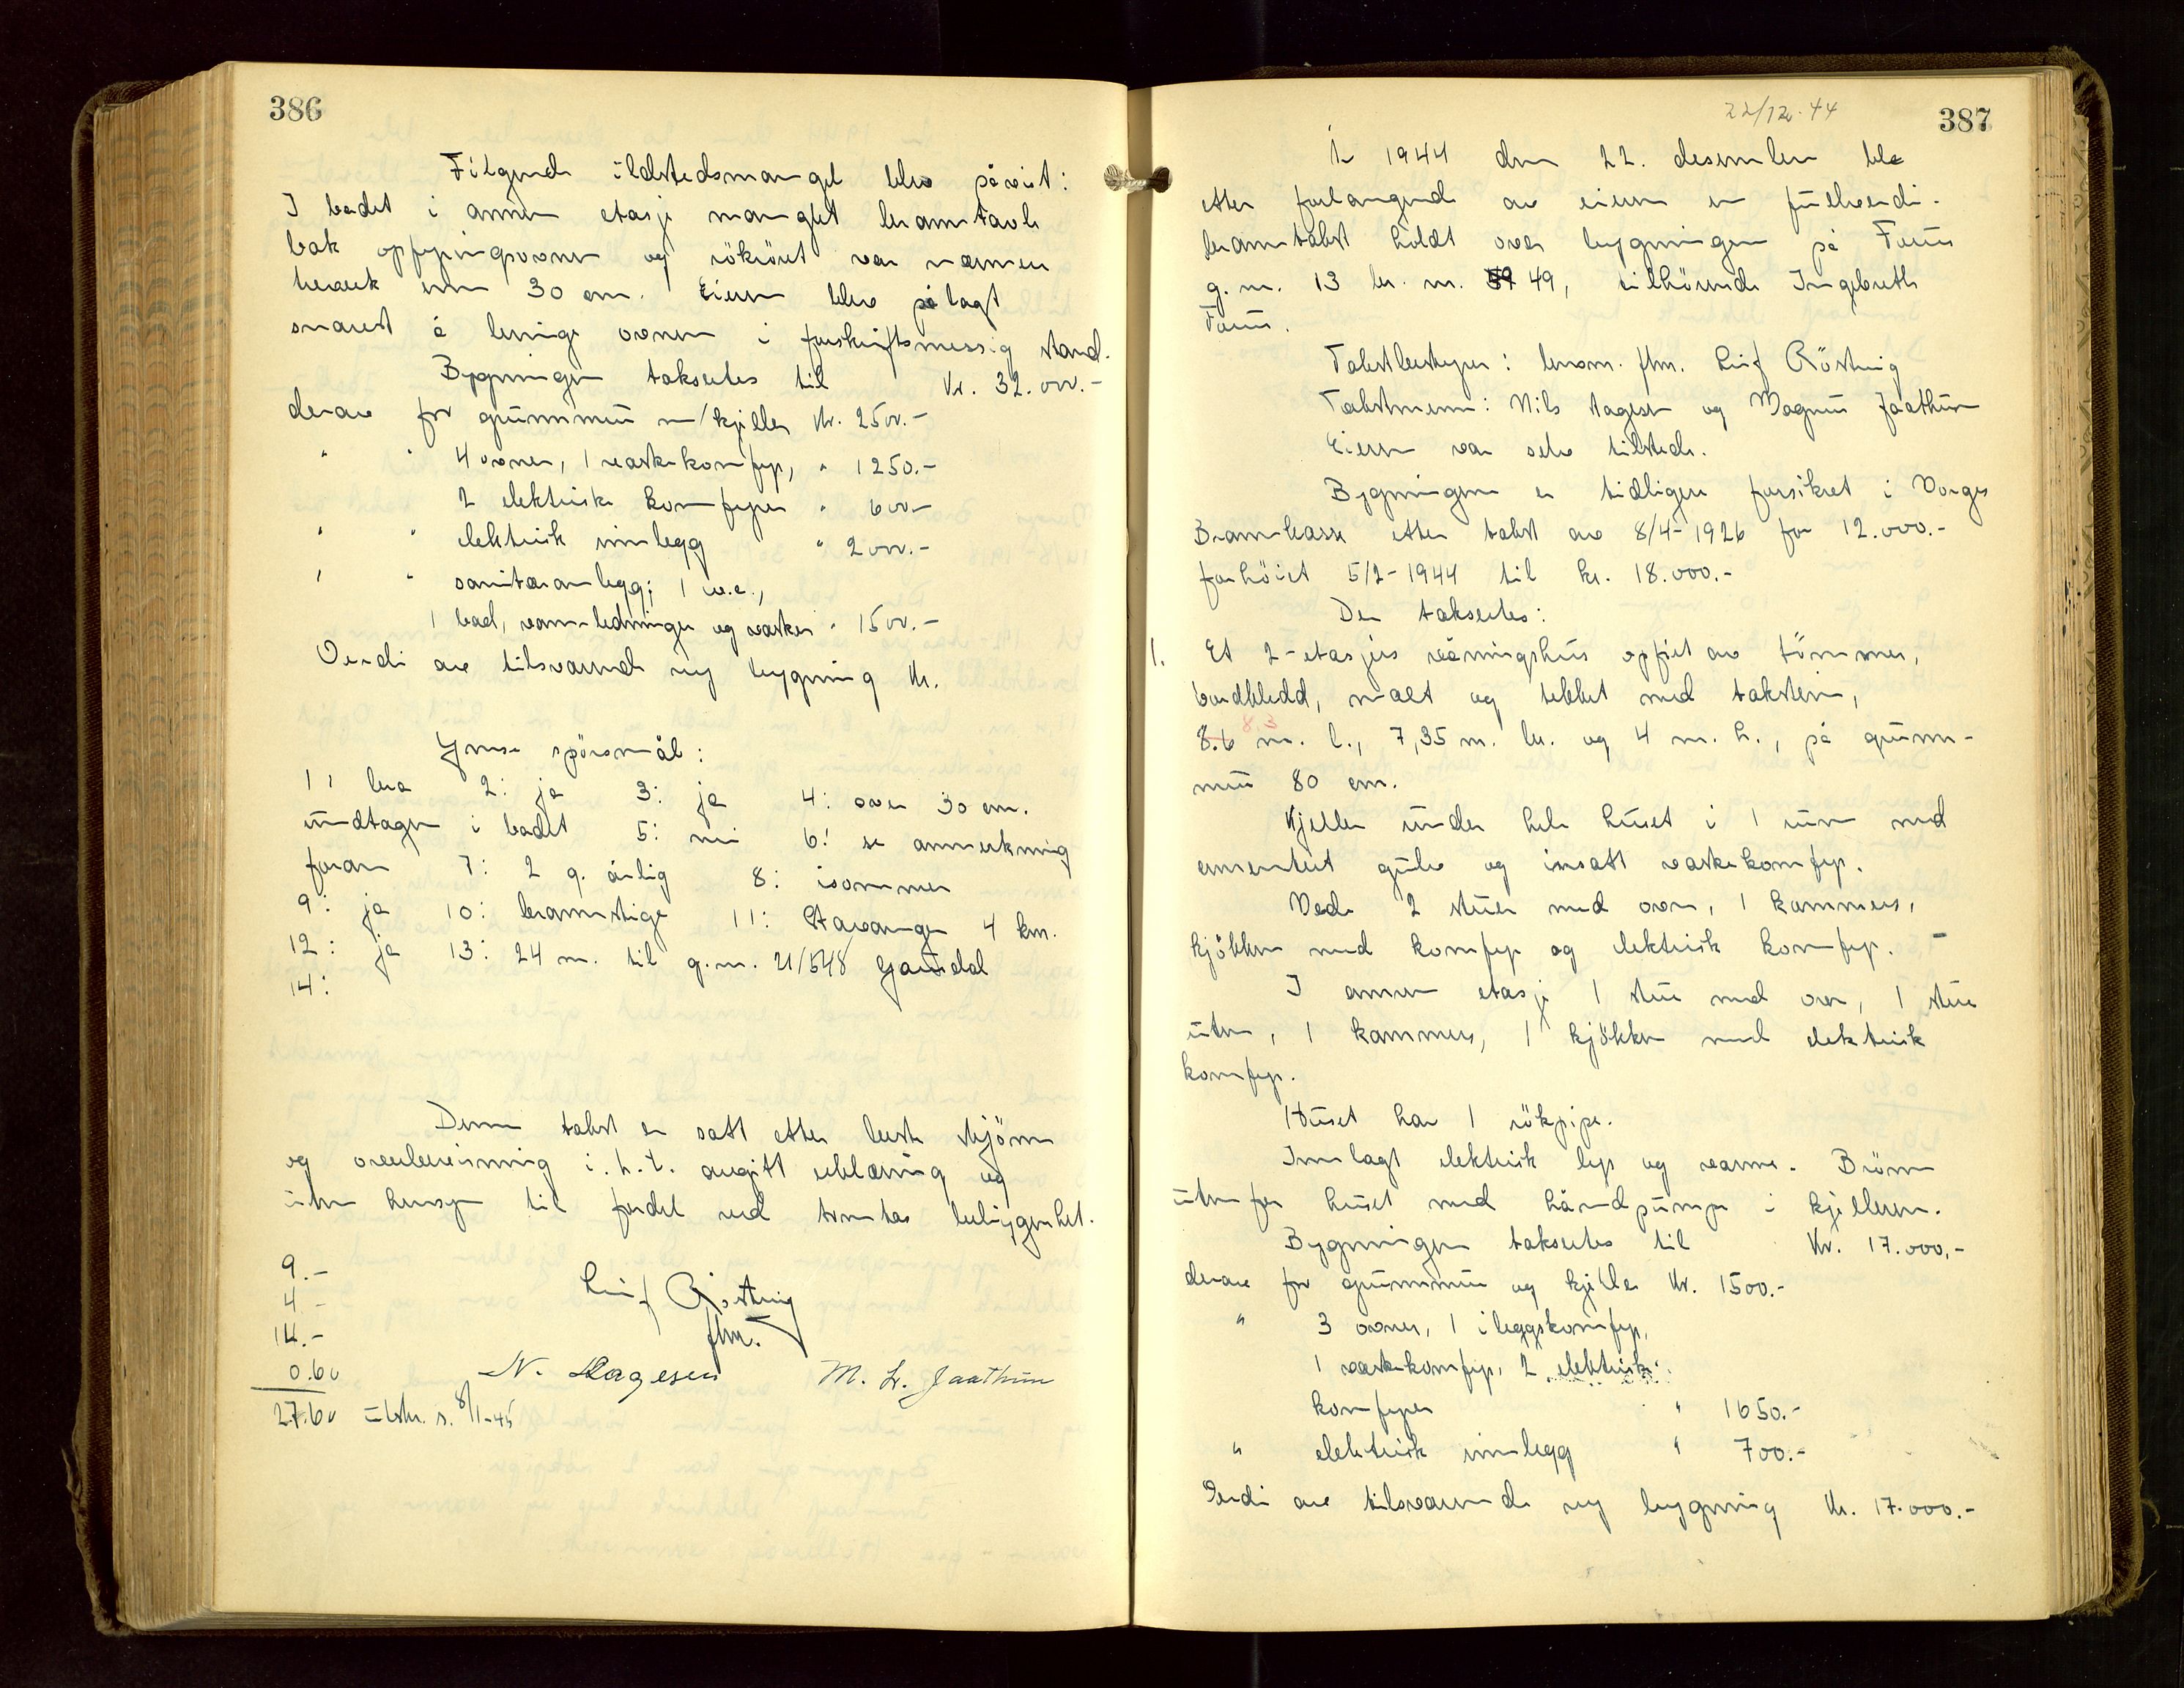 386
Følgende ildstedsmangel blev påvist:
I badet i annen etasje manglet branntavle
bak opfyringsovnen og rökröret var nærmere
treverk enn 30 cm. Eieren blev pålagt
snarest å bringe ovnen i forskriftsmessig stand.
Bygningen takseres til Kr. 32.000.-
derav for grunnmur m/kjeller Kr. 2500.-
" " 4 ovner, 1 vaskekomfyr, " 1250.-
2 elektriske komfyrer " 600.-
" " elektrisk innlegg " 2000.-
" " sanitæranlegg; 1 w.c.,
1 bad, vannledninger og vasker " 1500.-
Verdi av tilsvarende ny bygning Kr.
Ymse spörsmål:
1: bra 2: ja 3: ja 4: over 30 cm.
undtagen i badet 5: nei 6: se anmerkning
foran 7: 2 g. årlig 8: isommer
9: ja 10: brannstige 11: Stavanger 4 km.
12: ja 13: 24 m. til g.nr. 21/548 Gausdal
14:
Denne takst er satt etter beste skjönn
og overbevisning i.h.t. avgitt erklæring og
uten hensyn til fordel ved tomtas beliggenhet.
9.-
4.-
14.-
0.60
27.60 utskr. s. 8/1-45
Leif Röstvig
flm.
N. Hagesen M. L. Jaathun
22/12-44
387
År 1944 den 22. desember ble
etter forlangende av eieren en fullverdi-
branntakst holdt over bygningen på Forus
g.nr. 13 br. nr. 49, tilhörende Ingebreth
Forus.
Takstbestyrer: lensm. flm. Leif Röstvig
Takstmenn: Nils Hagesen og Magnus Jaathun
Eieren var selv tilstede.
Bygningen er tidligere forsikret i Norges
Brannkasse etter takst av 8/4-1926 for 12.000.-
forhöiet 5/2-1944 til kr. 18.000.-
Den takseres:
1. Et 2-etasjers våningshus opfört av tömmer,
bordkledd, malt og tekket med takstein,
8.6 8.3 m. l., 7,35 m. br. og 4 m. h., på grunn-
mur 80 cm.
Kjeller under hele huset i 1 rum med
cementert gulv og insatt vaskekomfyr.
Nede 2 stuer med ovn, 1 kammers,
kjökken med komfyr og elektrisk komfyr. -
I annen etasje 1 stue med ovn, 1 stue
uten, 1 kammers, 1 kjökken med elektrisk
komfyr.
Huset har 1 rökpipe.
Innlagt elektrisk lys og varme. Brönn
utenfor huset med håndpumpe i kjelleren.
Bygningen takseres til Kr. 17.000.-
derav for grunnmur og kjeller Kr. 1500.-
" 3 ovner, 1 ileggskomfyr,
1 vaskekomfyr, 2 elektriske
komfyrer " 1650.-
" elektrisk innlegg " 700.-
Verdi av tilsvarende ny bygning Kr. 17.000.-